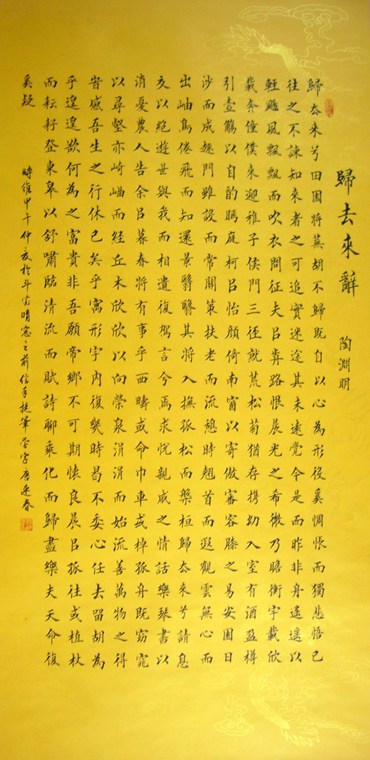 歸去來辭 陶淵明
歸去來兮田園將蕪胡不歸既自以心為形役奚惆悵而獨悲悟已
往之不諫知來者之可追實迷途其未遠覺今是而昨非舟遙遙以
輕颺風飄飄而吹衣問征夫㠯前路恨晨光之希微乃瞻衡宇載欣
載奔僮僕來迎稚子候門三徑就荒松菊猶存攜幼入室有酒盈樽
引壺觴以自酌眄庭柯㠯怡顏倚南窗以寄傲審容膝之易安園日
涉而成趣門雖設而常關策扶老而流憩時翹首而遐觀雲無心而
出岫鳥倦飛而知還景翳翳其將入撫孤松而盤桓歸去來兮請息
交以絕遊世與我而相遺復駕言兮焉求悅親戚之情話樂琴書以
消憂農人告余㠯暮春將有事乎西疇或命巾車或棹孤舟既窈窕
以尋壑亦崎嶇而經丘木欣欣以向榮泉涓涓而始流善萬物之得
時感吾生之行休已矣乎寓形宇內復幾時曷不委心任去留胡為
乎遑遑欲何為之富貴非吾願帝鄉不可期懷良辰㠯孤往或植杖
而耘耔登東皋以舒嘯臨清流而賦詩聊乘化而歸盡樂夫天命復
奚疑
時維甲午仲夏於斗室晴窗之前信手提筆 字唐逢春